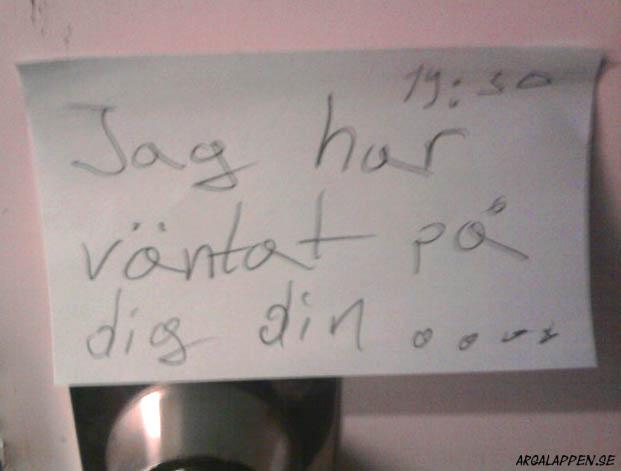 19:30
Jag har
väntat på
dig din ....
ARGALAPPEN.SE